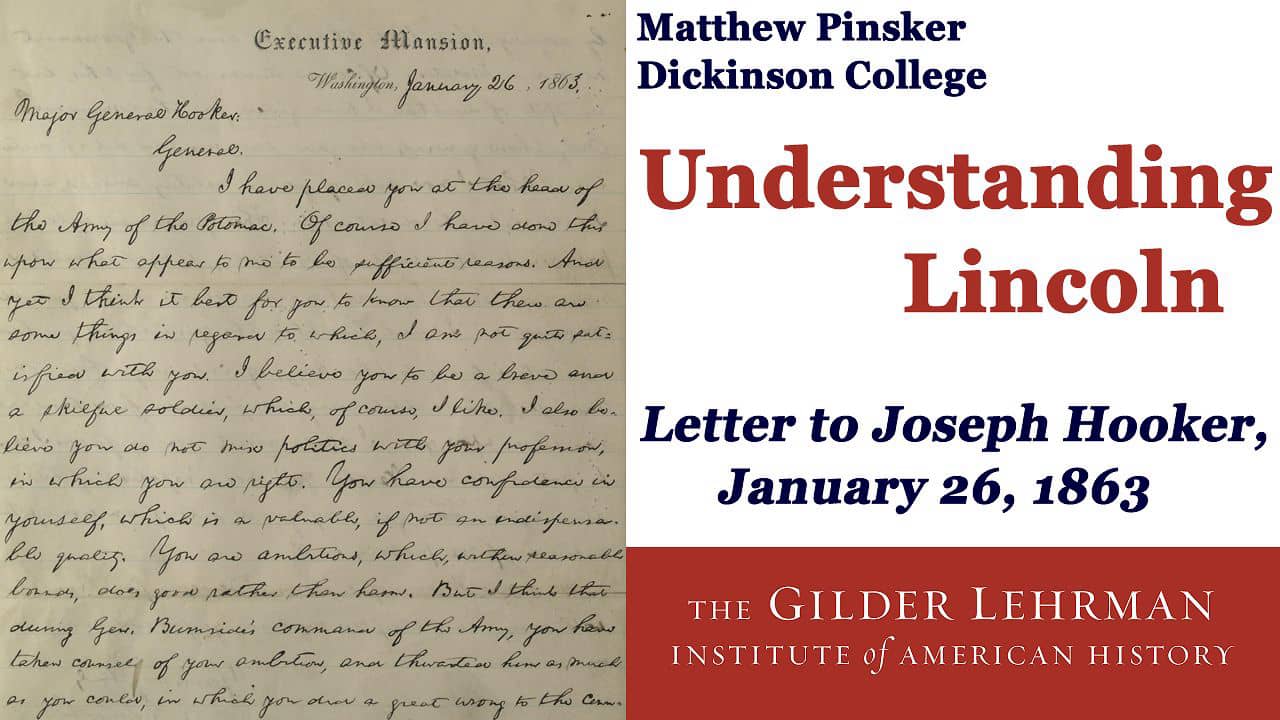 Executive Mansion,
Washington, January 26, 1863.
Major General Hooker:
General.
I have placed you at the head of
the Army of the Potomac. Of course I have done this
upon what appear to me to be sufficient reasons. And
yet I think it best for you to know that there are
some things in regard to which, I am not quite sat=
isfied with you. I believe you to be a brave and
a skilful soldier, which, of course, I like. I also be-
lieve you do not mix politics with your profession,
in which you are right. You have confidence in
yourself, which is a valuable, if not an indispensa-
ble quality. You are ambitious, which, within reasonable
bounds, does good rather than harm. But I think that
during Gen. Burnside's command of the Army, you have
taken counsel of your ambition, and thwarted him as much
as you could, in which you did a great wrong to the coun-
Matthew Pinsker
Dickinson College
Understanding
Lincoln
Letter to Joseph Hooker,
January 26, 1863
THE GILDER LEHRMAN
INSTITUTE of AMERICAN HISTORY